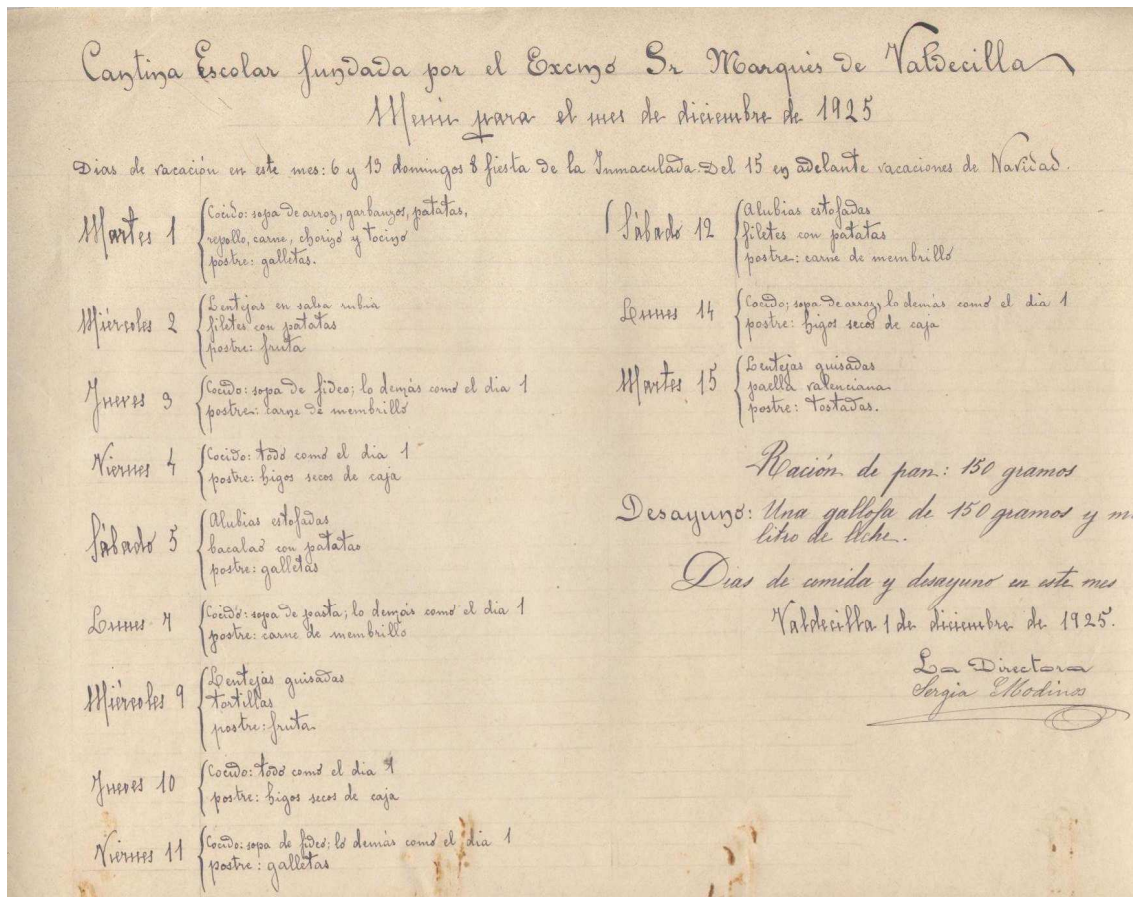 Cantina Escolar fundada por el Excmo Sr Marqués de Valdecilla
Menú para el mes de diciembre de 1925
Dias de vacación en este mes: 6 y 13 domingos 8 fiesta de la Inmaculada. Del 15 en adelante vacaciones de Navidad.
Martes 1
Cocido: sopa de arroz, garbanzos, patatas,
repollo, carne, chorizo y tocino
postre: galletas.
Miércoles 2
Lentejas en salsa rubia
filetes con patatas
postre: fruta
Jueves 3
Cocido: sopa de fideo; lo demás como el dia 1
postre: carne de membrillo
Viernes 4
Cocido: todo como el dia 1
postre: higos secos de caja
Sábado 5
Alubias estofadas
bacalao con patatas
postre: galletas
Lunes 7
Cocido: sopa de pasta; lo demás como el dia 1
postre: carne de membrillo
Miércoles 9
Lentejas guisadas
tortillas
postre: fruta
Jueves 10
Cocido: todo como el dia 1
postre: higos secos de caja
Viernes 11
Cocido: sopa de fideo; lo demás como el dia 1
postre: galletas
Sábado 12
Alubias estofadas
filetes con patatas
postre: carne de membrillo
Lunes 14
Cocido; sopa de arroz, lo demás como el dia 1
postre: higos secos de caja
Martes 15
Lentejas guisadas
paella valenciana
postre: tostadas.
Ración de pan: 150 gramos
Desayuno: Una gallofa de 150 gramos y m
litro de leche.
Dias de comida y desayuno en este mes
Valdecilla 1 de diciembre de 1925.
La Directora
Sergia Modinos